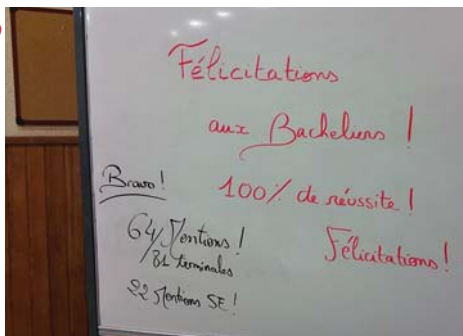 Félicitations
aux Bacheliers !
100% de réussite !
Félicitations !
Bravo !
64/ Mentions !
81 terminales
22 Mentions SE !